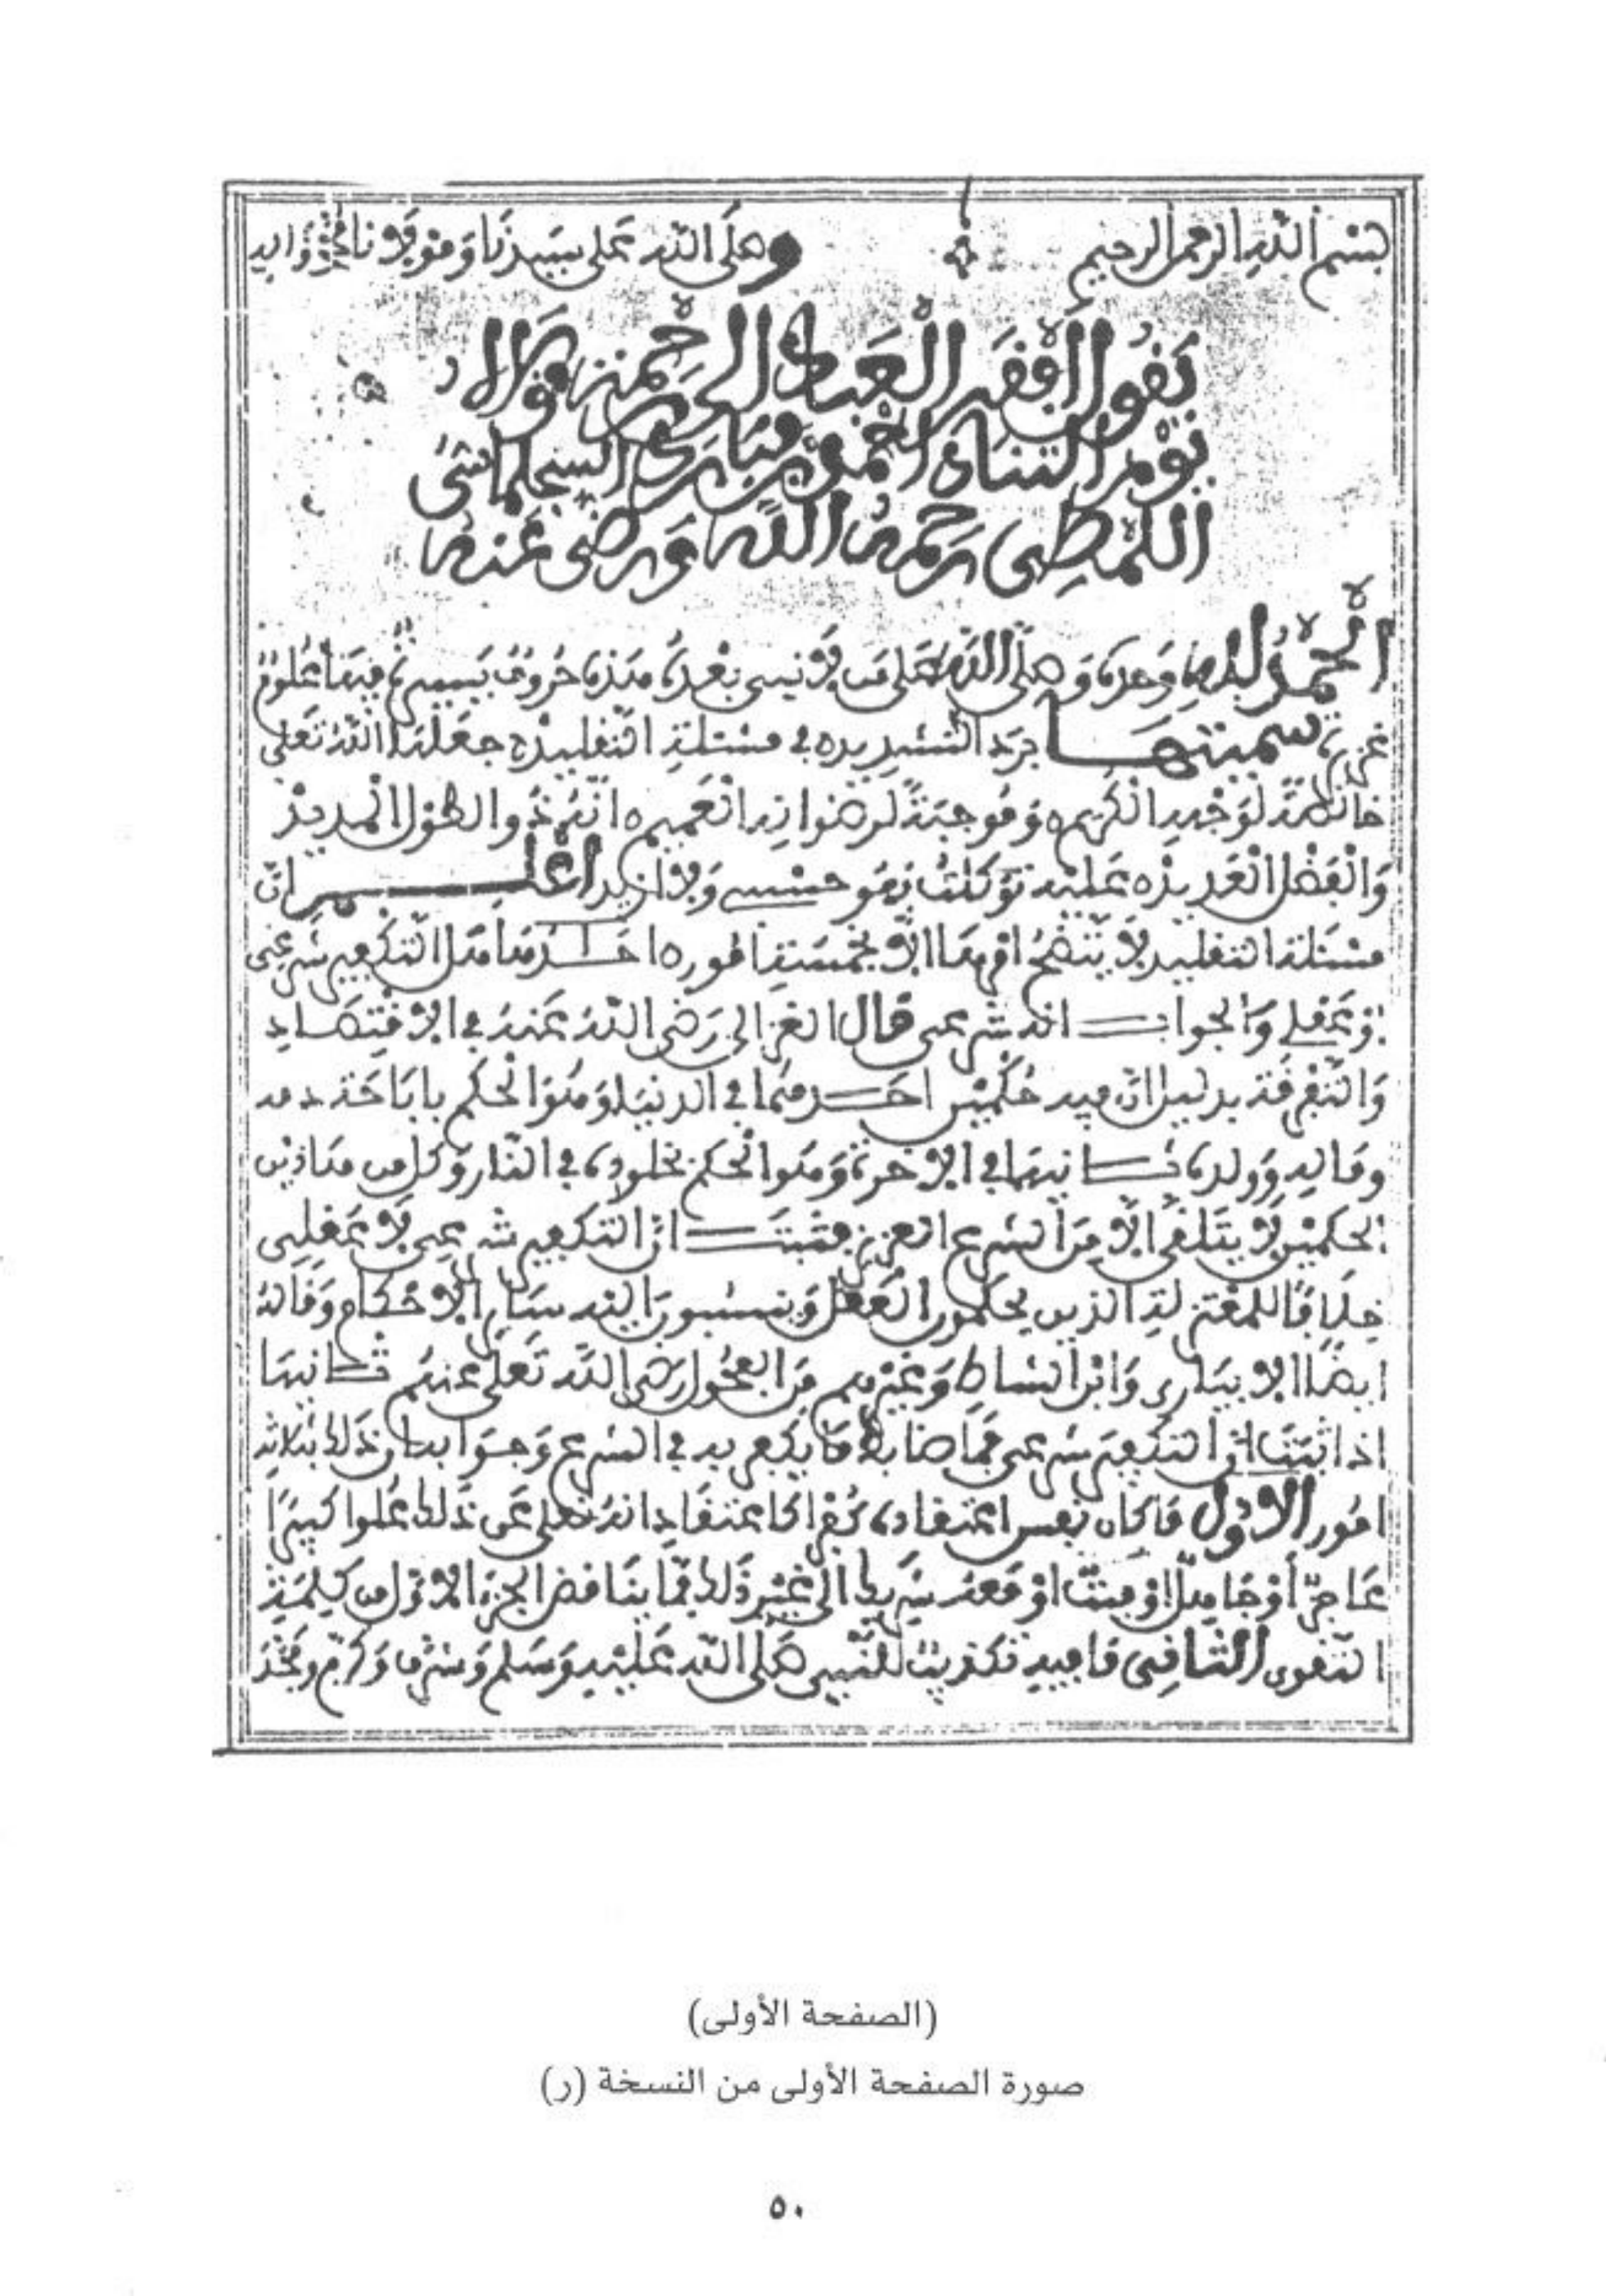 بسم الله الرحمن الرحيم وصلى الله على سيدنا ومولانا محمد وآله
يقول أفقر العباد الى رحمة مولاه
يوم التناد أحمد بن مبارك السجلماسي
اللمطي رحمه الله ورضي عنه
الحمد لله وحده وصلى الله على من لا نبي بعده هذه حروف يسيرة فيها علوم
غزيرة سميتها رد التشديد في مسئلة التقليد جعلها الله تعلى
خالصة لوجهه الكريم وموجبة لرضوانه العميم انه ذو الطول المديد
والفضل العديد عليه توكلت فهو حسبي ولا ازيد اعلم ان
مسئلة التقليد لا يتضح امرها الا بخمسة امور احدها هل التكفير شرعي
او عقلي والجواب انه شرعي قال الغزالي رضي الله عنه في الاقتصاد
والتفرقة بدليل ان فيه حكمين احدهما في الدنيا وهو الحكم باباحة دمه
وماله وولده ثانيهما في الاخرة وهو الحكم بخلوده في النار وكل من هاذين
الحكمين لا يتلقى الا من الشرع العزيز فثبت ان التكفير شرعي لا عقلي
خلافا للمعتزلة الذين يحكمون العقل وينسبون اليه سائر الاحكام وقاله
ايضا الابياري وابن الشاط وغيرهم من الفحول رضي الله تعلى عنهم ثانيها
اذا ثبت ان التكفير شرعي فما ضابط ما يكفر به في الشرع وجوابه ان ذلك بثلاثة
امور الاول ما كان نفس اعتقاده كفرا كاعتقاد انه تعلى عن ذلك علوا كبيرا
عاجز أو جاهل او ميت او معه شريك الى غير ذلك مما يناقض الجزء الاول من كلمة
التقوى الثاني ما فيه تكذيب للنبي صلى الله عليه وسلم وشرف وكرم ومجد
(الصفحة الأولى)
صورة الصفحة الأولى من النسخة (ر)
٥٠